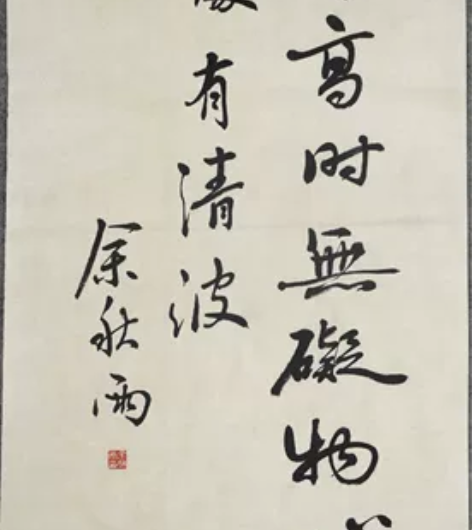 高时無礙物
有清波
余秋雨